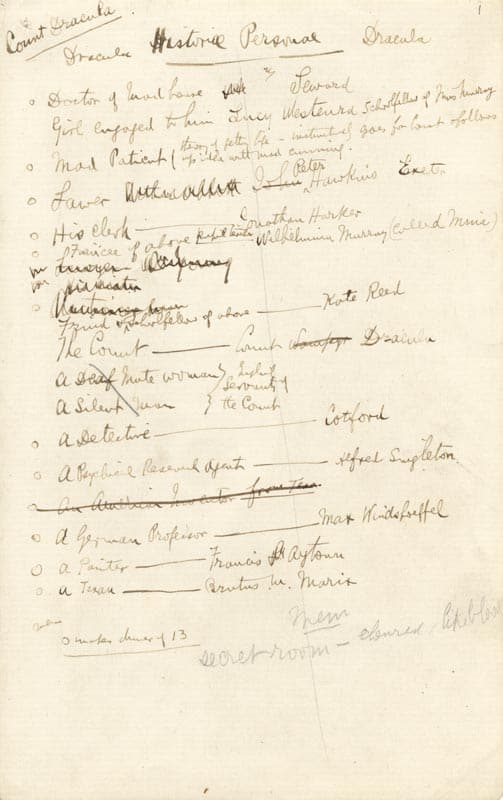 Count Dracula
1
Dracula Historiae Personae Dracula
Doctor of Mad house Seward
Girl engaged to him Lucy Westenra schoolfellow of Miss Murray
Mad Patient (theory of getting life - instinctively goes for Count & follows
up idea with mad cunning.
Lawer Arthur Abbott John Peter Hawkins Exeter
His clerk Jonathan Harker
Fiancée of above pupil teacher Wilhelmina Murray (called Mina)
Lawyer
Friend & schoolfellow of above Kate Reed
The Count Count Wampyr Dracula
A Deaf Mute woman } English
A Silent Man } Servants of
the Count
A Detective Cotford
A Psychical Research Agent Alfred Singleton
An American Inventor from Texas
A German Professor Max Windshoeffel
A Painter Francis Aytown
A Texan Brutus M. Marix
Mem
makes dinner of 13
secret room - coloured like blood